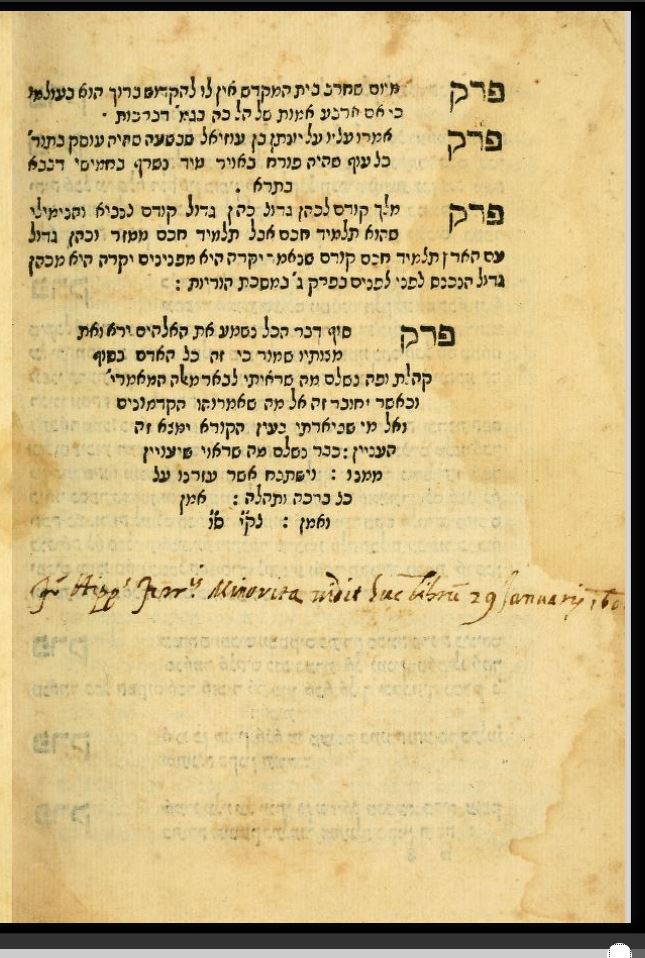 פרק מיום שחרב בית המקדש אין לו להקדוש ברוך הוא בעולמו
כי אם ארבע אמות של הלכה בגמ' דברכות ·
פרק אמרו עליו על יונתן בן עוזיאל שבשעה שהיה עוסק בתור'
כל עוף שהיה פורח באויר מיד נשרף בחמישי דבבא
בתרא .
פרק מלך קודם לכהן גדול כהן גדול קודם לנביא והנימילי
שהוא תלמיד חכם אבל תלמיד חכם ממזר וכהן גדול
עם הארץ תלמיד חכם קודם שנאמר יקרה היא מפנינים יקרה היא מכהן
גדול הנכנס לפני לפנים בפרק ג' במסכת הוריות :
פרק סוף דבר הכל נשמע את האלהים ירא ואת
מצותיו שמור כי זה כל האדם בסוף
קהלת ופה נשלם מה שראיתי לבאר מאלה המאמרי'
וכאשר יחובר זה אל מה שאמרוהו הקדמונים
ואל מי שביארתי בעין הקורא ימצא זה
העניין : כבר נשלם מה שראוי שיעויין
ממנו : וישתבח אשר עזרנו על
כל ברכה ותהלה : אמן
ואמן : נקי ס"ו
Fr Hipp.s Ferr.s Minorita vidit hūc librū 29 Januarij